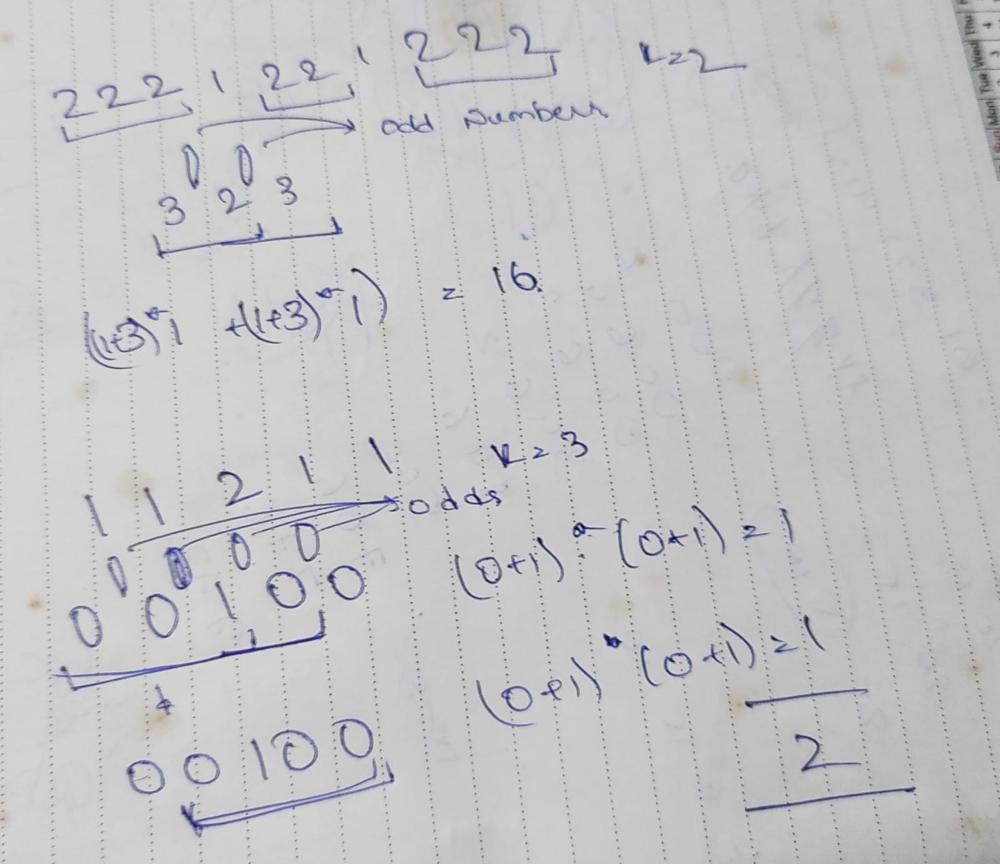 222 1 22 1 222 k=2
odd Numbers
0 0
3 2 3
(1+3)*1 +(1+3)*1) = 16
1 1 2 1 1 k=3
odds
0 0 0 0
0 0 1 0 0
(0+1) * (0+1) = 1
(0+1) * (0+1) = 1
0 0 1 0 0
2
Mon Tue Wed Thu